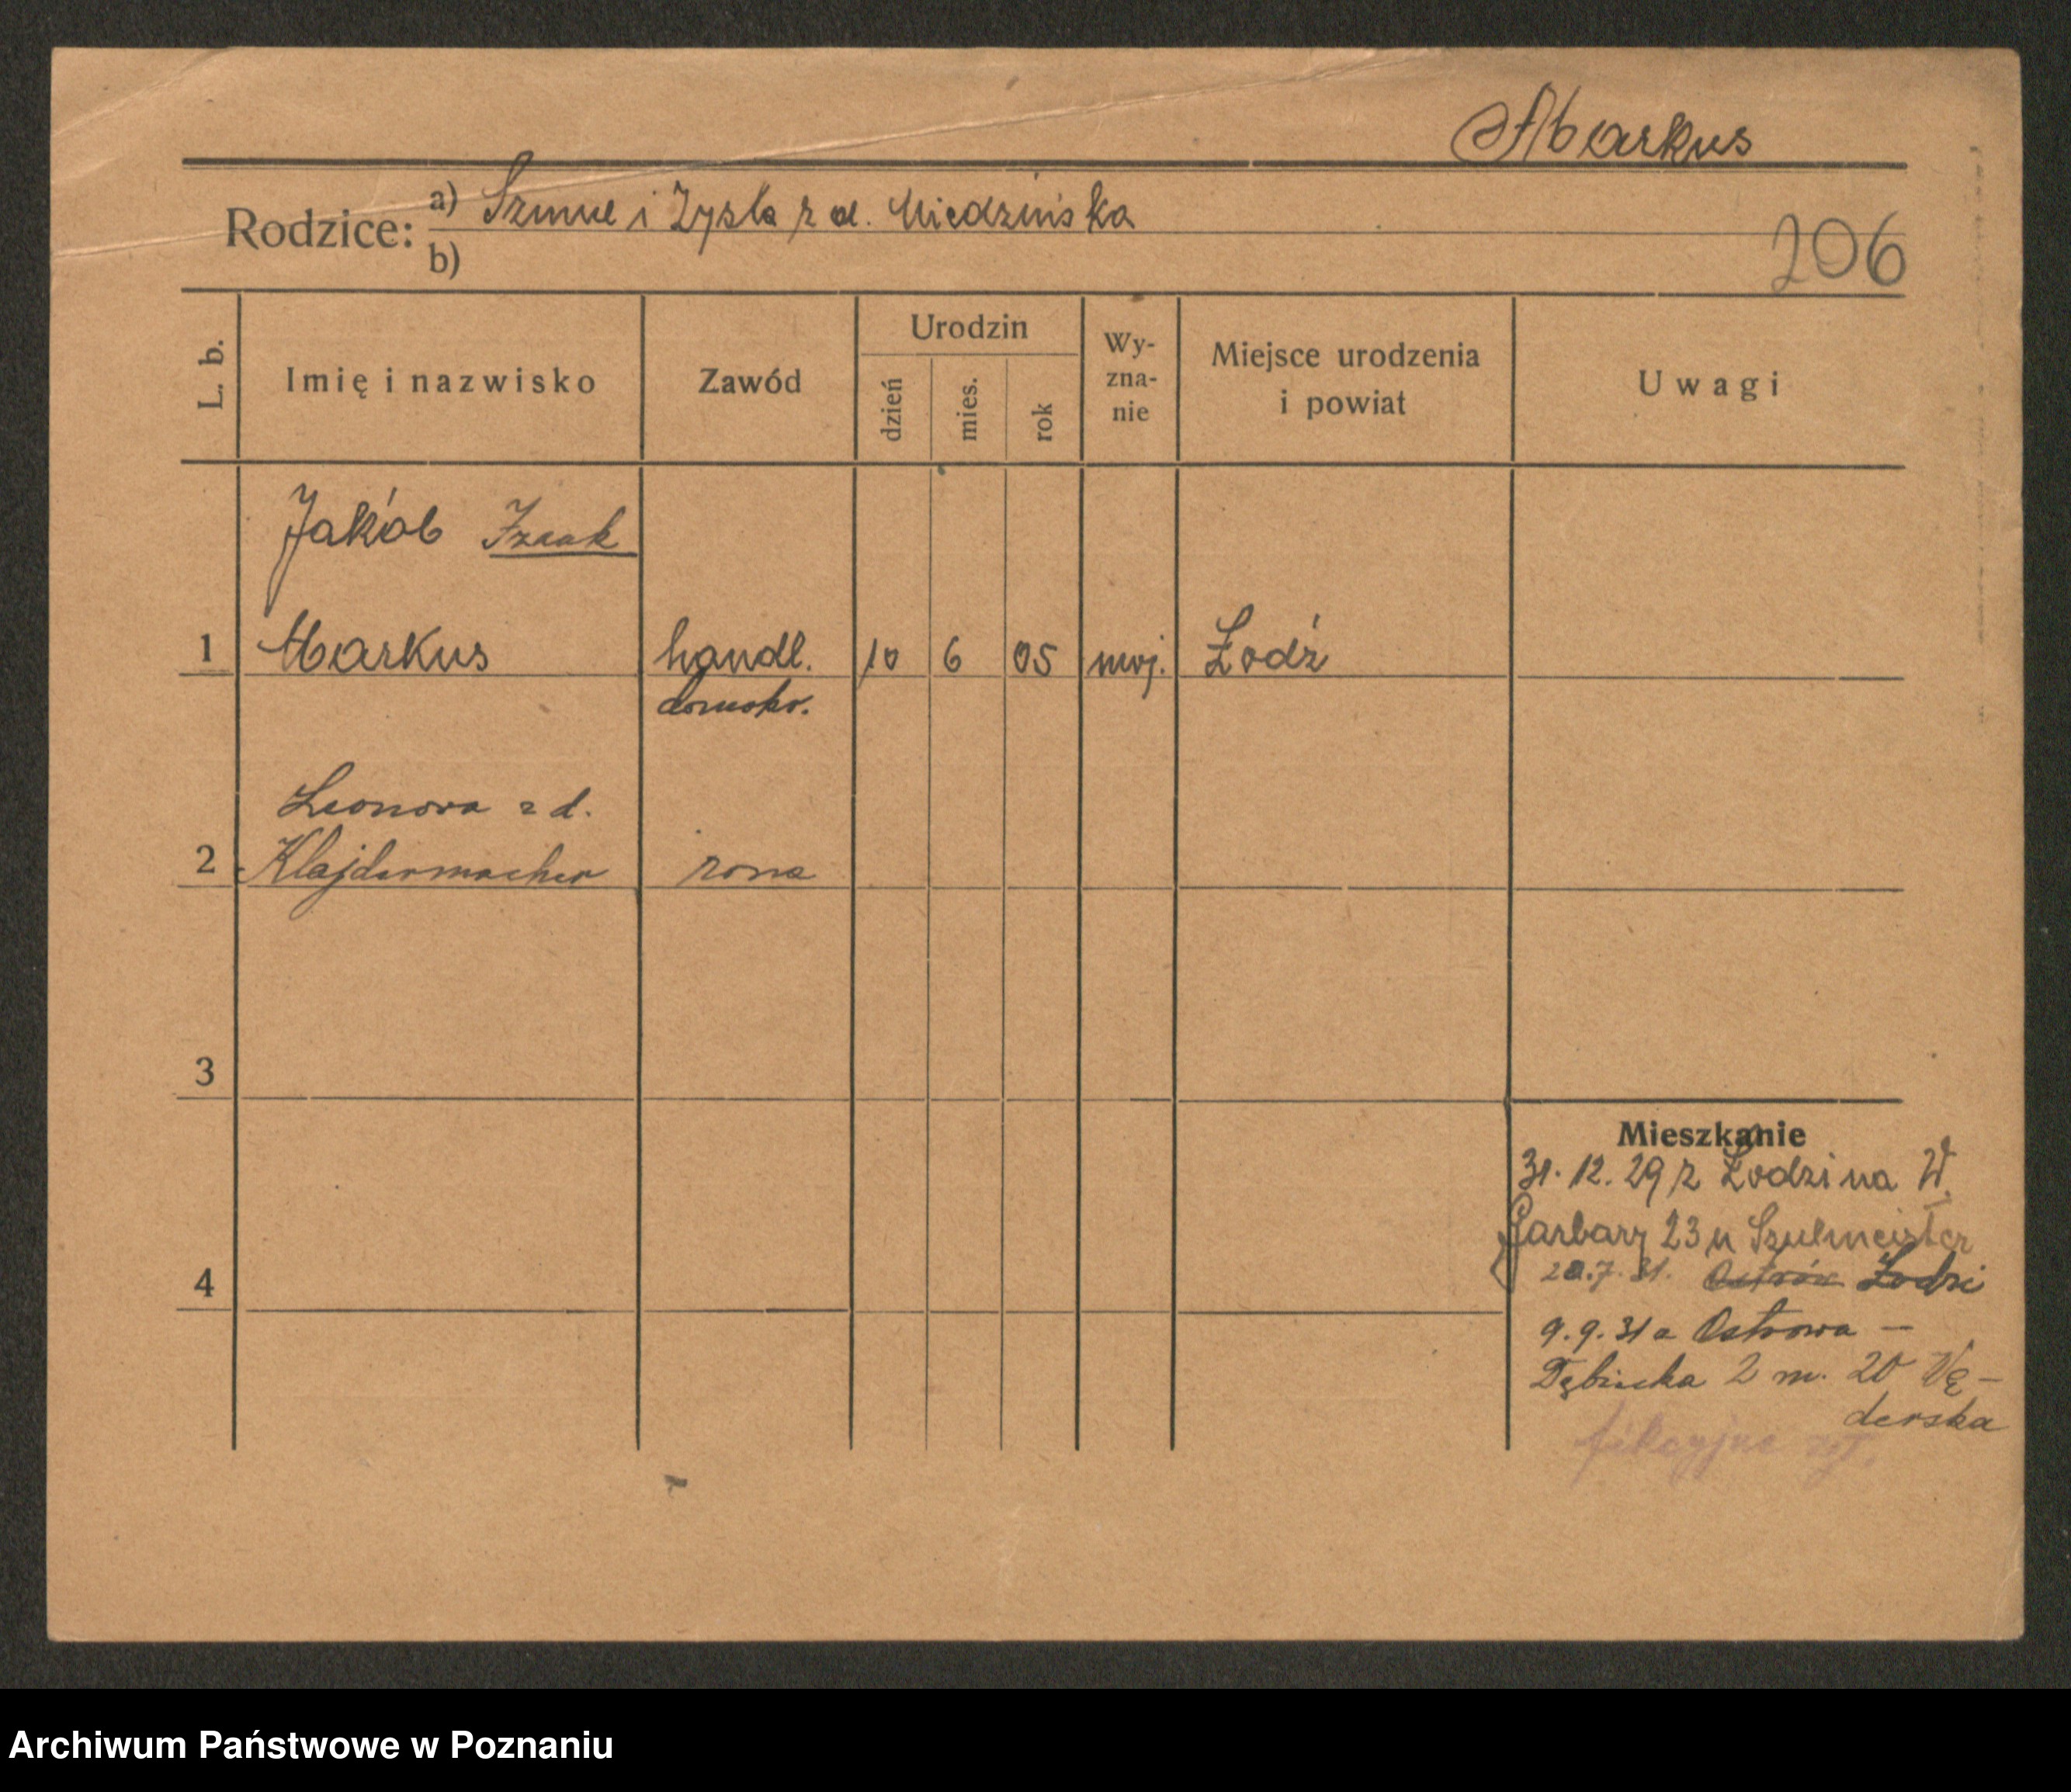 Markus
Rodzice: a) Szmul i Zysla z d. Miedzińska
b)
206
L. b.
Imię i nazwisko
Zawód
Urodzin
dzień
mies.
rok
Wy-
zna-
nie
Miejsce urodzenia
i powiat
Uwagi
Jakób Izaak
1 Markus handl. 10 6 05 moj. Łodź
domokr.
Leonora z d.
2 Klajdermacher żona
3
4
Mieszkanie
31. 12. 29 z Łodzi na W.
Garbary 23 u Szulmeister
20.7.31. Ostrów Łodzi
9.9.31 a Ostrowa –
Dębińska 2 m. 20
derska
fikcyjne
Archiwum Państwowe w Poznaniu